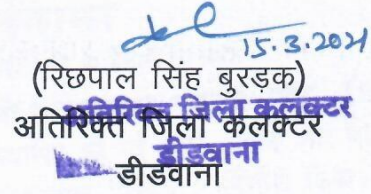 15.3.2021
(रिछपाल सिंह बुरड़क)
अतिरिक्त जिला कलक्टर
अतिरिक्त जिला कलक्टर
डीडवाना
डीडवाना